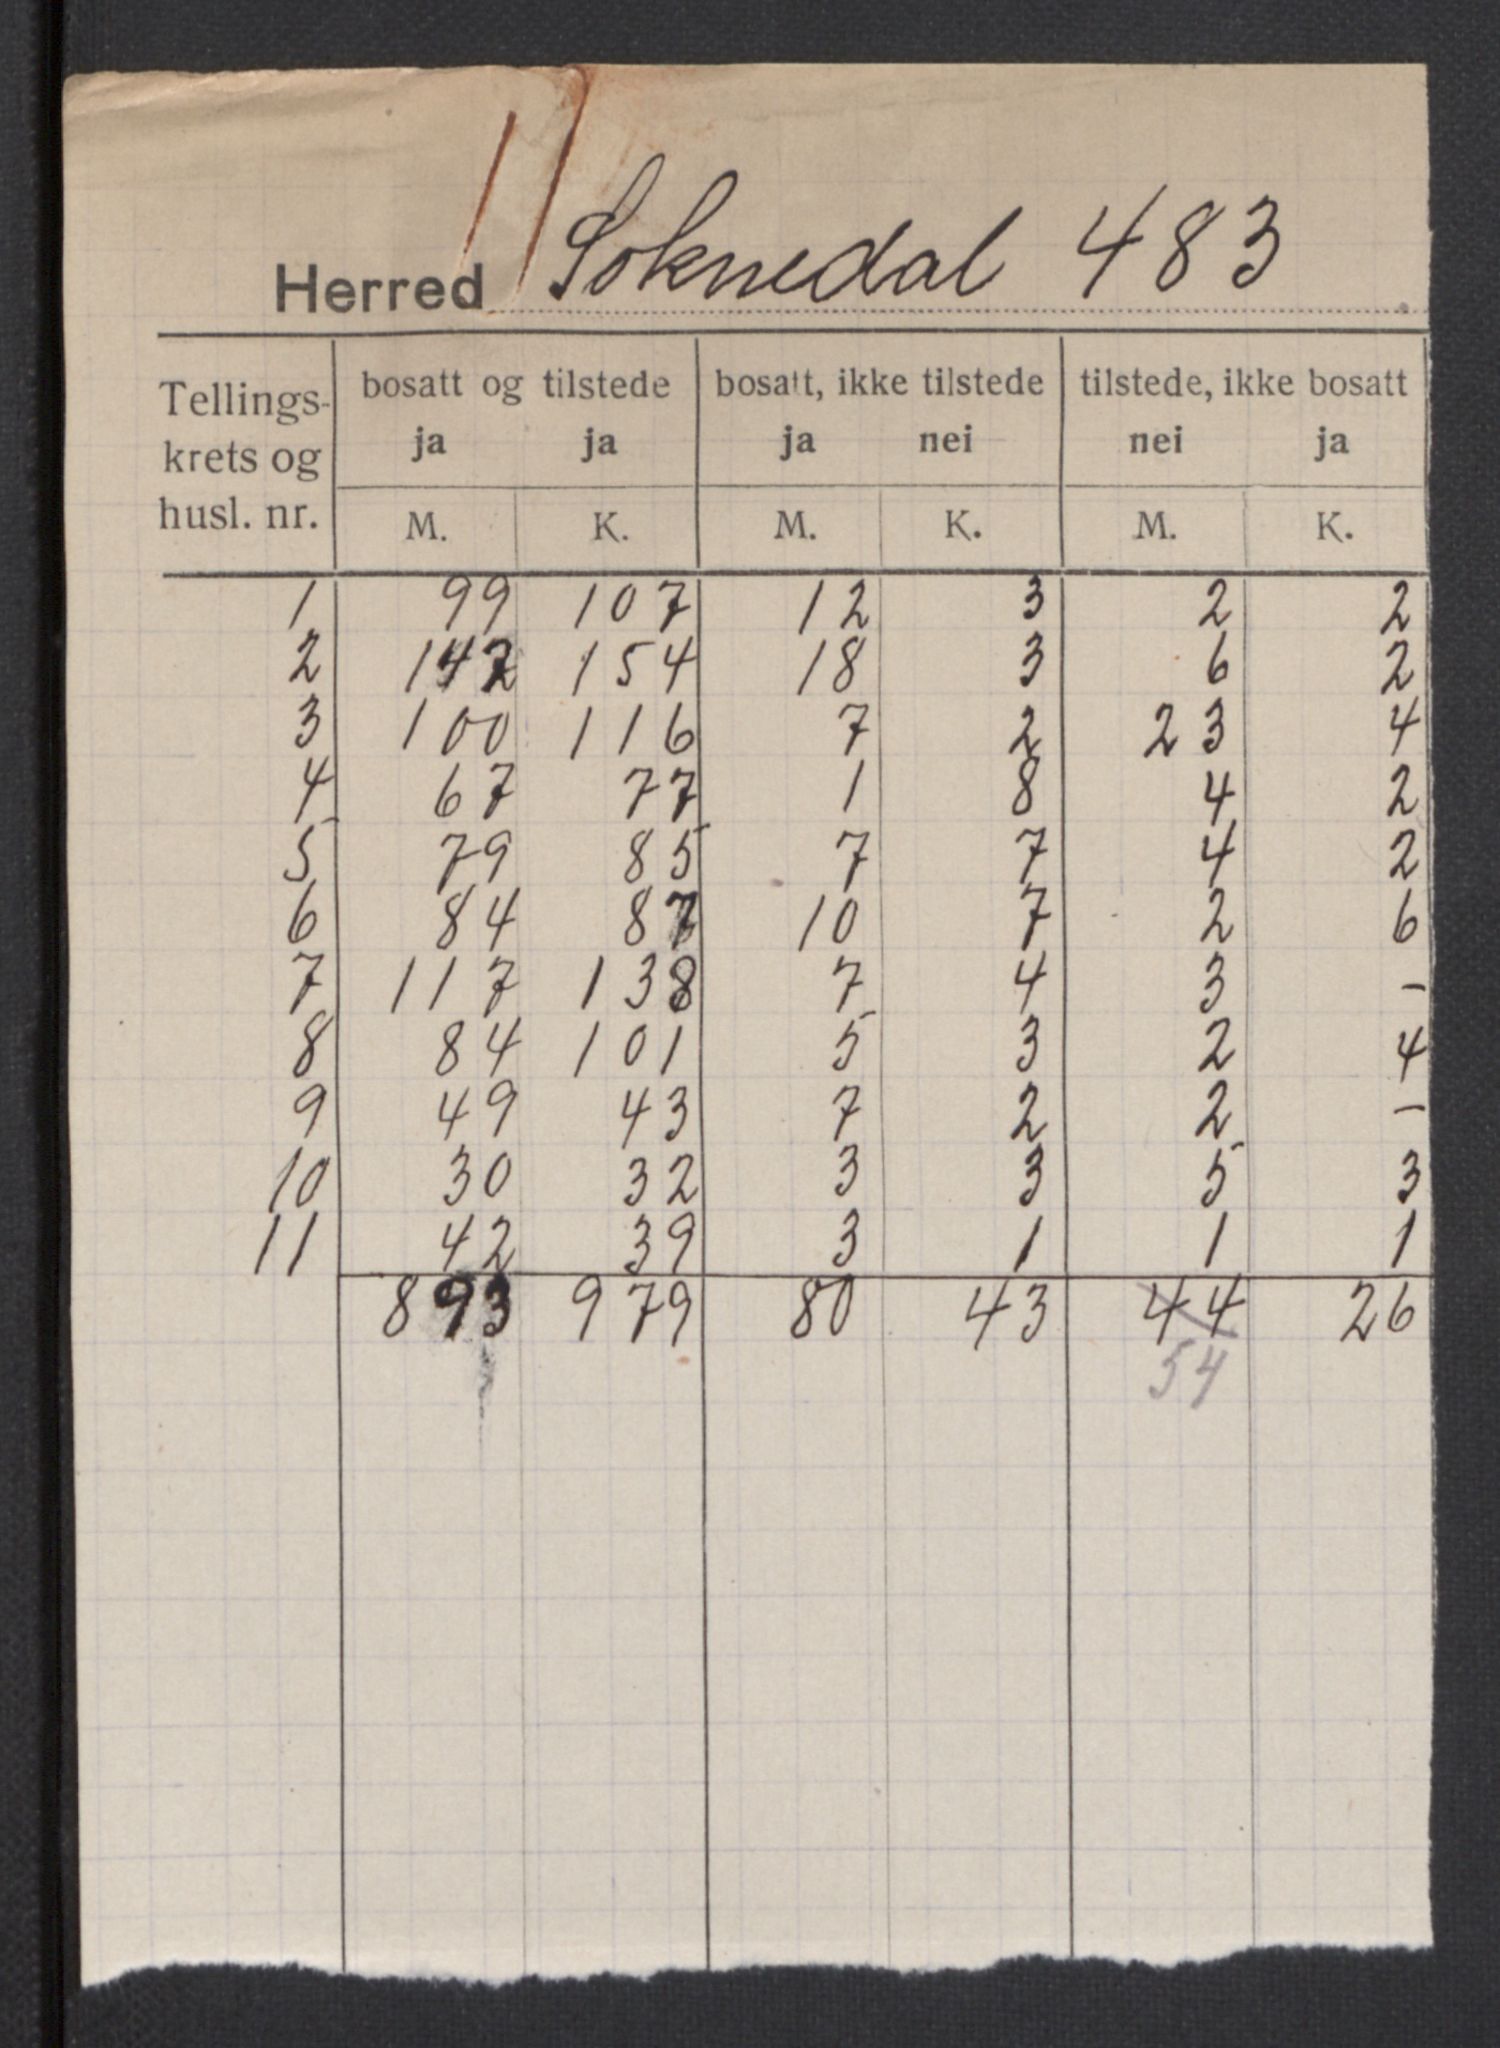 Herred Soknedal 483
Tellings- krets og husl. nr. | bosatt og tilstede | bosatt, ikke tilstede | tilstede, ikke bosatt
ja ja | ja nei | nei ja
M. K. M. K. M. K.
1 99 107 12 3 2 2
2 142 154 18 3 6 2
3 100 116 7 2 23 4
4 67 77 1 8 4 2
5 79 85 7 7 4 2
6 84 87 10 7 2 6
7 117 138 7 4 3 -
8 84 101 5 3 2 4
9 49 43 7 2 2 -
10 30 32 3 3 5 3
11 42 39 3 1 1 1
893 979 80 43 44 26
54